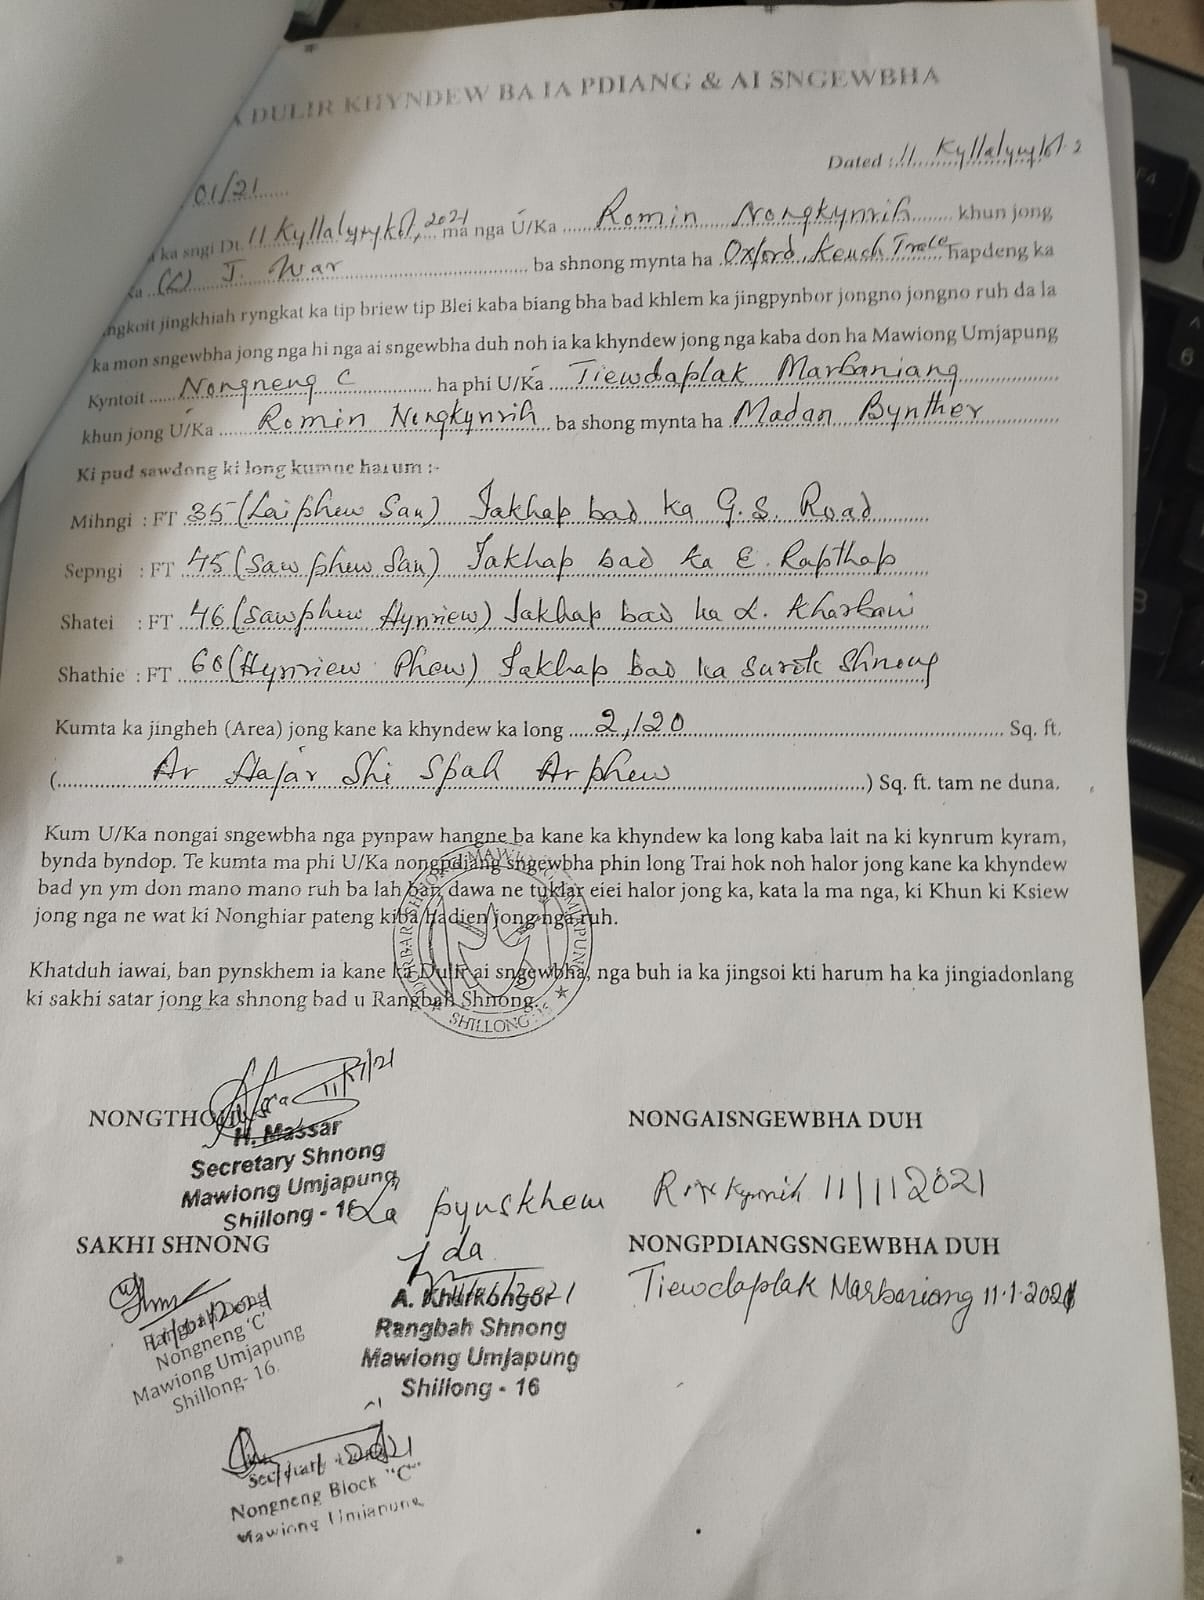 DULIR KHYNDEW BA IA PDIANG & AI SNGEWBHA
Dated : 11 Kyllalyngkot 2
01/21
ka sngi Dt. 11 Kyllalyngkot, 2021 ma nga U/Ka Romin Nongkynrih khun jong
(L) J. War ba shnong mynta ha Oxford, Keuch Trace hapdeng ka
jingkhiah ryngkat ka tip briew tip Blei kaba biang bha bad khlem ka jingpynbor jongno jongno ruh da la
ka mon sngewbha jong nga hi nga ai sngewbha duh noh ia ka khyndew jong nga kaba don ha Mawiong Umjapung
Kyntoit Nongneng C ha phi U/Ka Tiewdaplak Marbaniang
khun jong U/Ka Romin Nongkynrih ba shong mynta ha Madan Bynther
Ki pud sawdong ki long kumne harum :-
Mihngi : FT 35 (Laiphew San) Jakhap bad ka G.S. Road
Sepngi : FT 45 (Saw phew San) Jakhap bad ka E. Rapthap
Shatei : FT 46 (Sawphew Hynriew) Jakhap bad ka L. Kharbani
Shathie : FT 60 (Hynriew Phew) Jakhap bad ka Surok Shnong
Kumta ka jingheh (Area) jong kane ka khyndew ka long 2,120 Sq. ft.
( Ar Hajar Shi Spah Arphew ) Sq. ft. tam ne duna.
Kum U/Ka nongai sngewbha nga pynpaw hangne ba kane ka khyndew ka long kaba lait na ki kynrum kyram,
bynda byndop. Te kumta ma phi U/Ka nongpdiang sngewbha phin long Trai hok noh halor jong kane ka khyndew
bad yn ym don mano mano ruh ba lah ban dawa ne tuklar eiei halor jong ka, kata la ma nga, ki Khun ki Ksiew
jong nga ne wat ki Nonghiar pateng kiba hadien jong nga ruh.
Khatduh iawai, ban pynskhem ia kane ka Dulir ai sngewbha, nga buh ia ka jingsoi kti harum ha ka jingiadonlang
ki sakhi satar jong ka shnong bad u Rangbah Shnong.
SHILLONG
NONGTHOH
H. Massar
Secretary Shnong
Mawiong Umjapung
Shillong - 16
NONGAISNGEWBHA DUH
La pynskhem
da
11/11 2021
SAKHI SHNONG
11/01/2021
Rangbah Dong
Nongneng 'C'
Mawiong Umjapung
Shillong- 16.
A. Kharkongor
Rangbah Shnong
Mawiong Umjapung
Shillong - 16
NONGPDIANGSNGEWBHA DUH
Tiewdaplak Marbaniang 11.1.2021
Nongneng Block "C"
Mawiong Umjapung